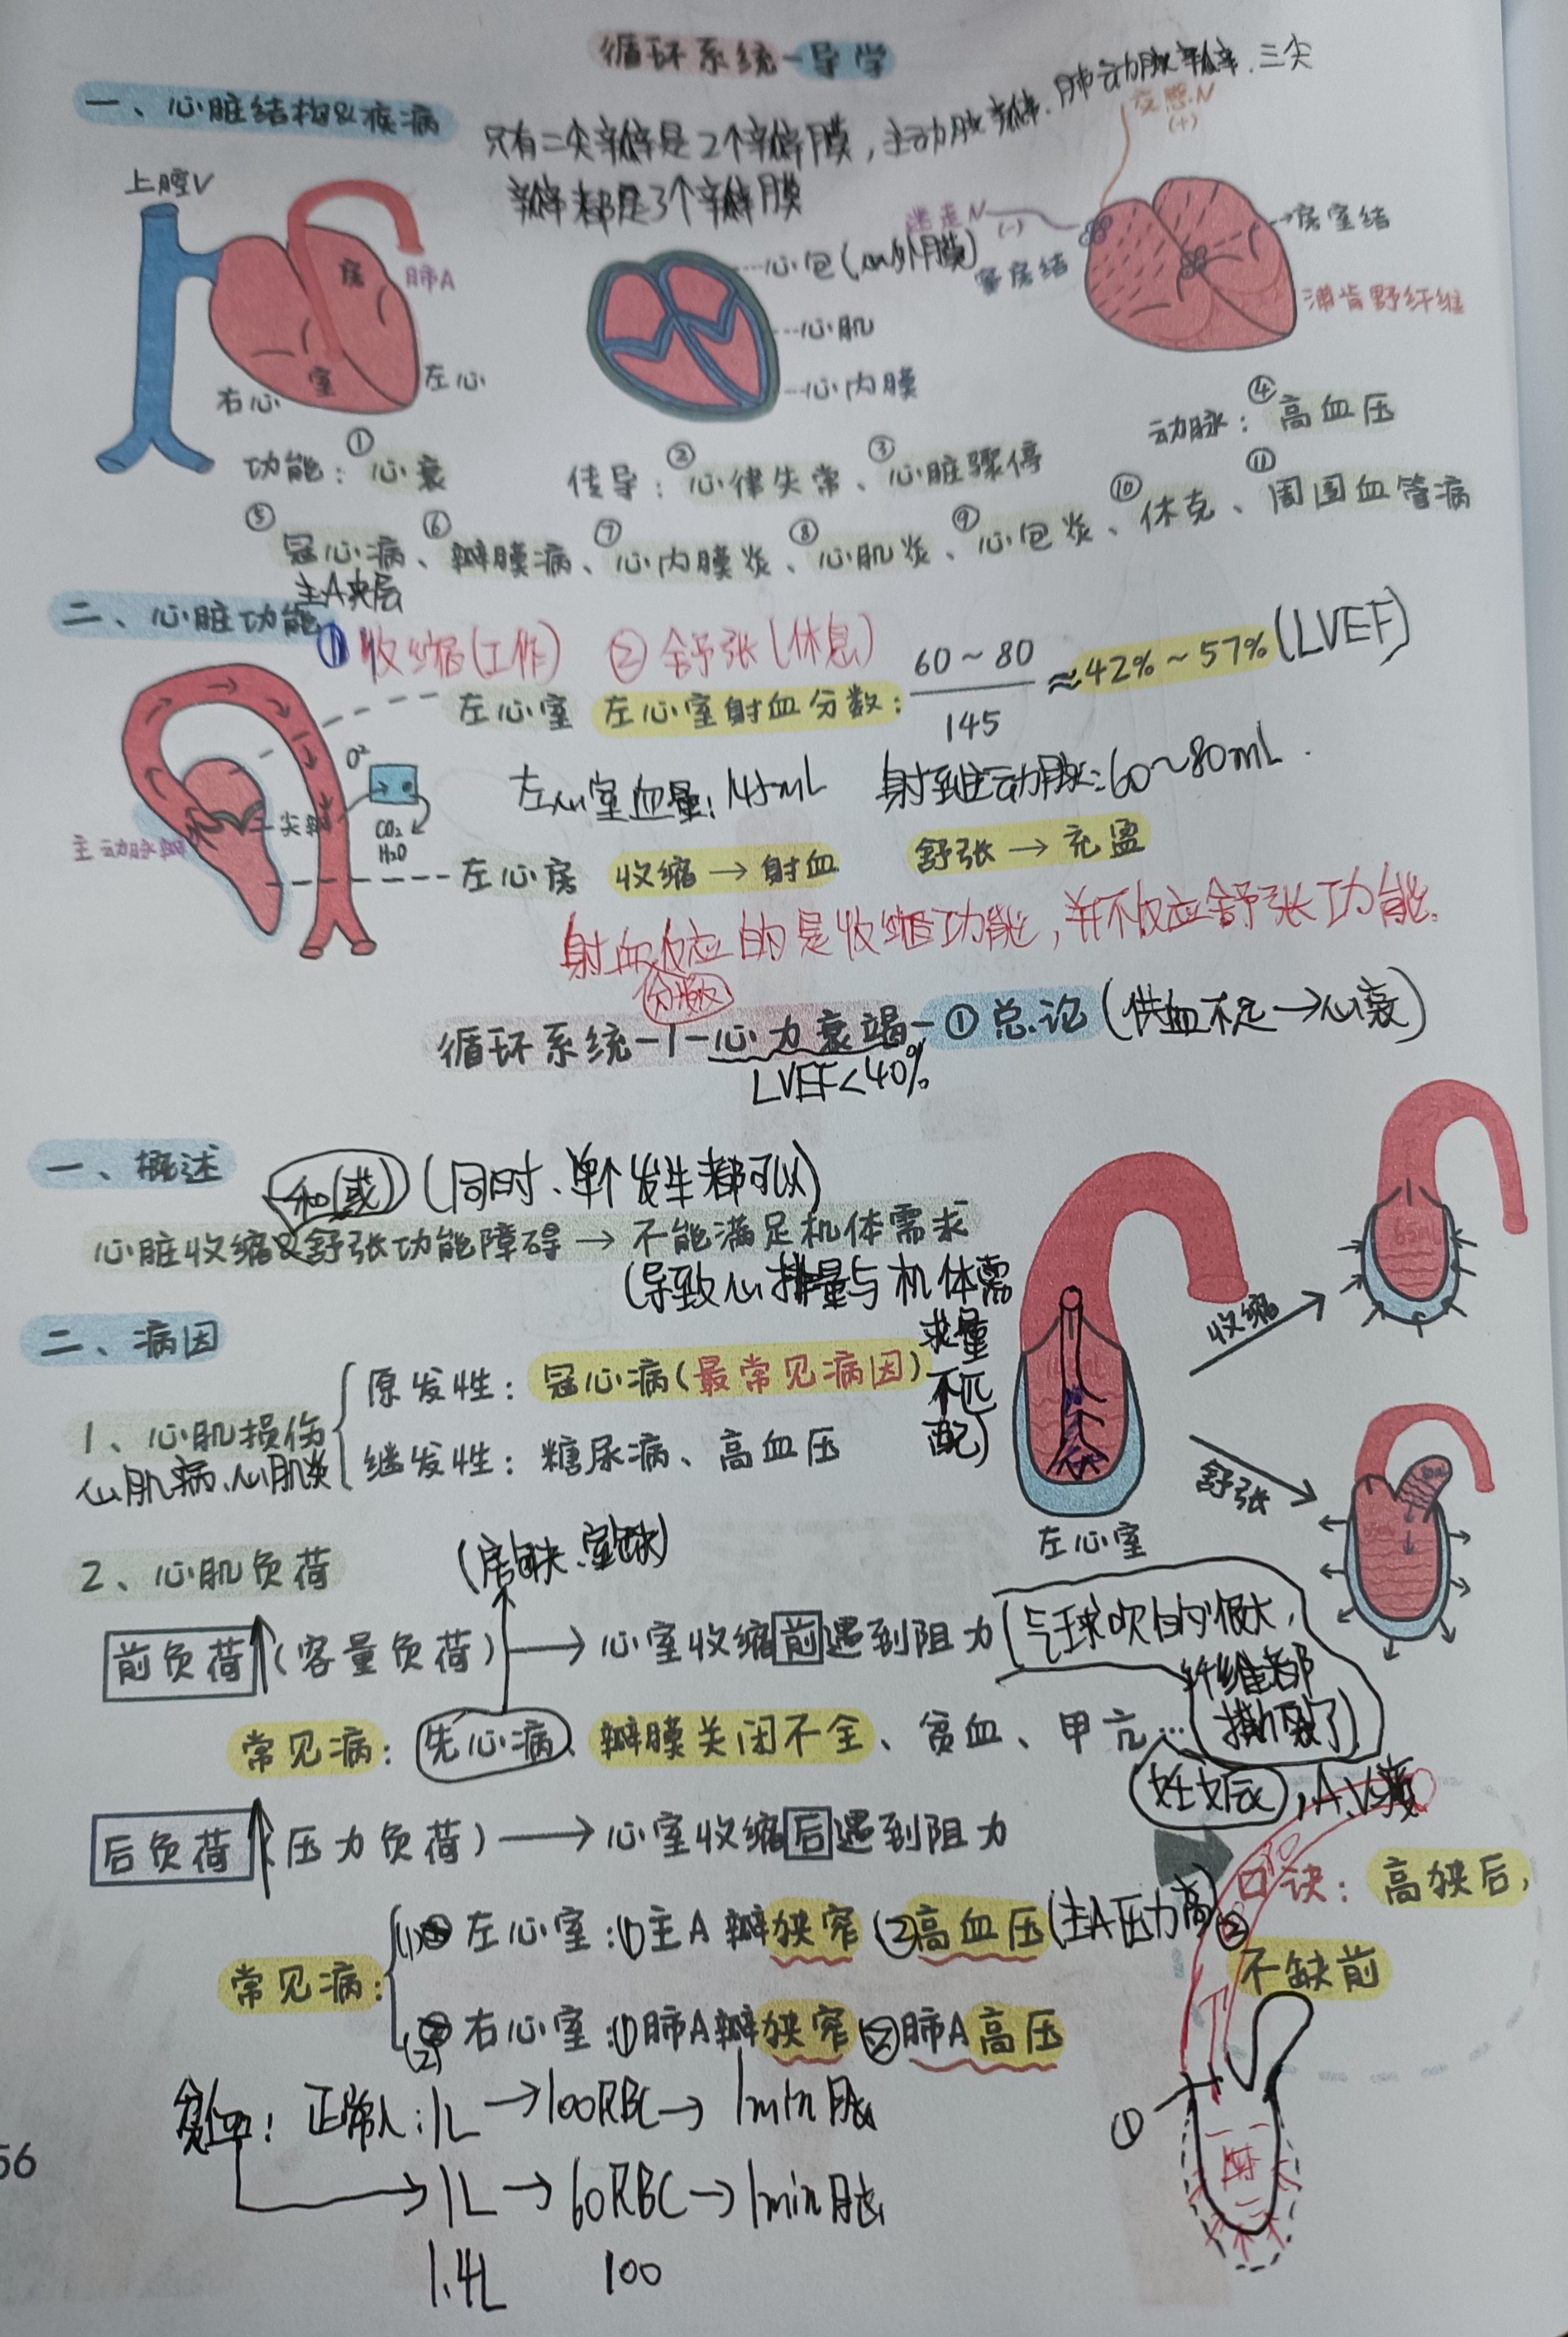 循环系统-导学
一、心脏结构&疾病
只有二尖瓣是2个瓣膜，主动脉瓣、肺动脉瓣、三尖
瓣都是3个瓣膜
上腔V
房
肺A
室
右心
左心
心包(心外膜)
心肌
心内膜
交感N
(+)
迷走N
(-)
窦房结
房室结
浦肯野纤维
功能：①心衰
传导：②心律失常、③心脏骤停
动脉：④高血压
⑤冠心病、⑥瓣膜病、⑦心内膜炎、⑧心肌炎、⑨心包炎、⑩休克、⑪周围血管病
主A夹层
二、心脏功能
①收缩(工作) ②舒张(休息)
左心室 左心室射血分数：60~80/145≈42%~57%(LVEF)
左心室血量：145mL 射到主动脉：60~80mL.
O²
CO₂
H₂O
二尖瓣
主动脉瓣
左心房 收缩→射血 舒张→充盈
射血分数反应的是收缩功能，并不反应舒张功能.
循环系统-1-心力衰竭-①总论(供血不足→心衰)
LVEF<40%
一、概述
和(或)(同时、单个发生都可以)
心脏收缩&舒张功能障碍→不能满足机体需求
(导致心排量与机体需
求量
不匹
配)
二、病因
1、心肌损伤
原发性：冠心病(最常见病因)
继发性：糖尿病、高血压
心肌病、心肌炎
65mL
收缩
舒张
左心室
2、心肌负荷
(房缺、室缺)
前负荷↑(容量负荷)→心室收缩前遇到阻力(气球吹的很大，
纤维都
撕裂了)
常见病：先心病、瓣膜关闭不全、贫血、甲亢...
妊娠，A、V瘘
后负荷↑(压力负荷)→心室收缩后遇到阻力
常见病：
(1)左心室：①主A瓣狭窄 ②高血压(主A压力高)
(2)右心室：①肺A瓣狭窄 ②肺A高压
口诀：高狭后，
不缺前
②
①
贫血：正常人：1L→100RBC→1min 脑
1L→60RBC→1min 脑
1.4L 100
56